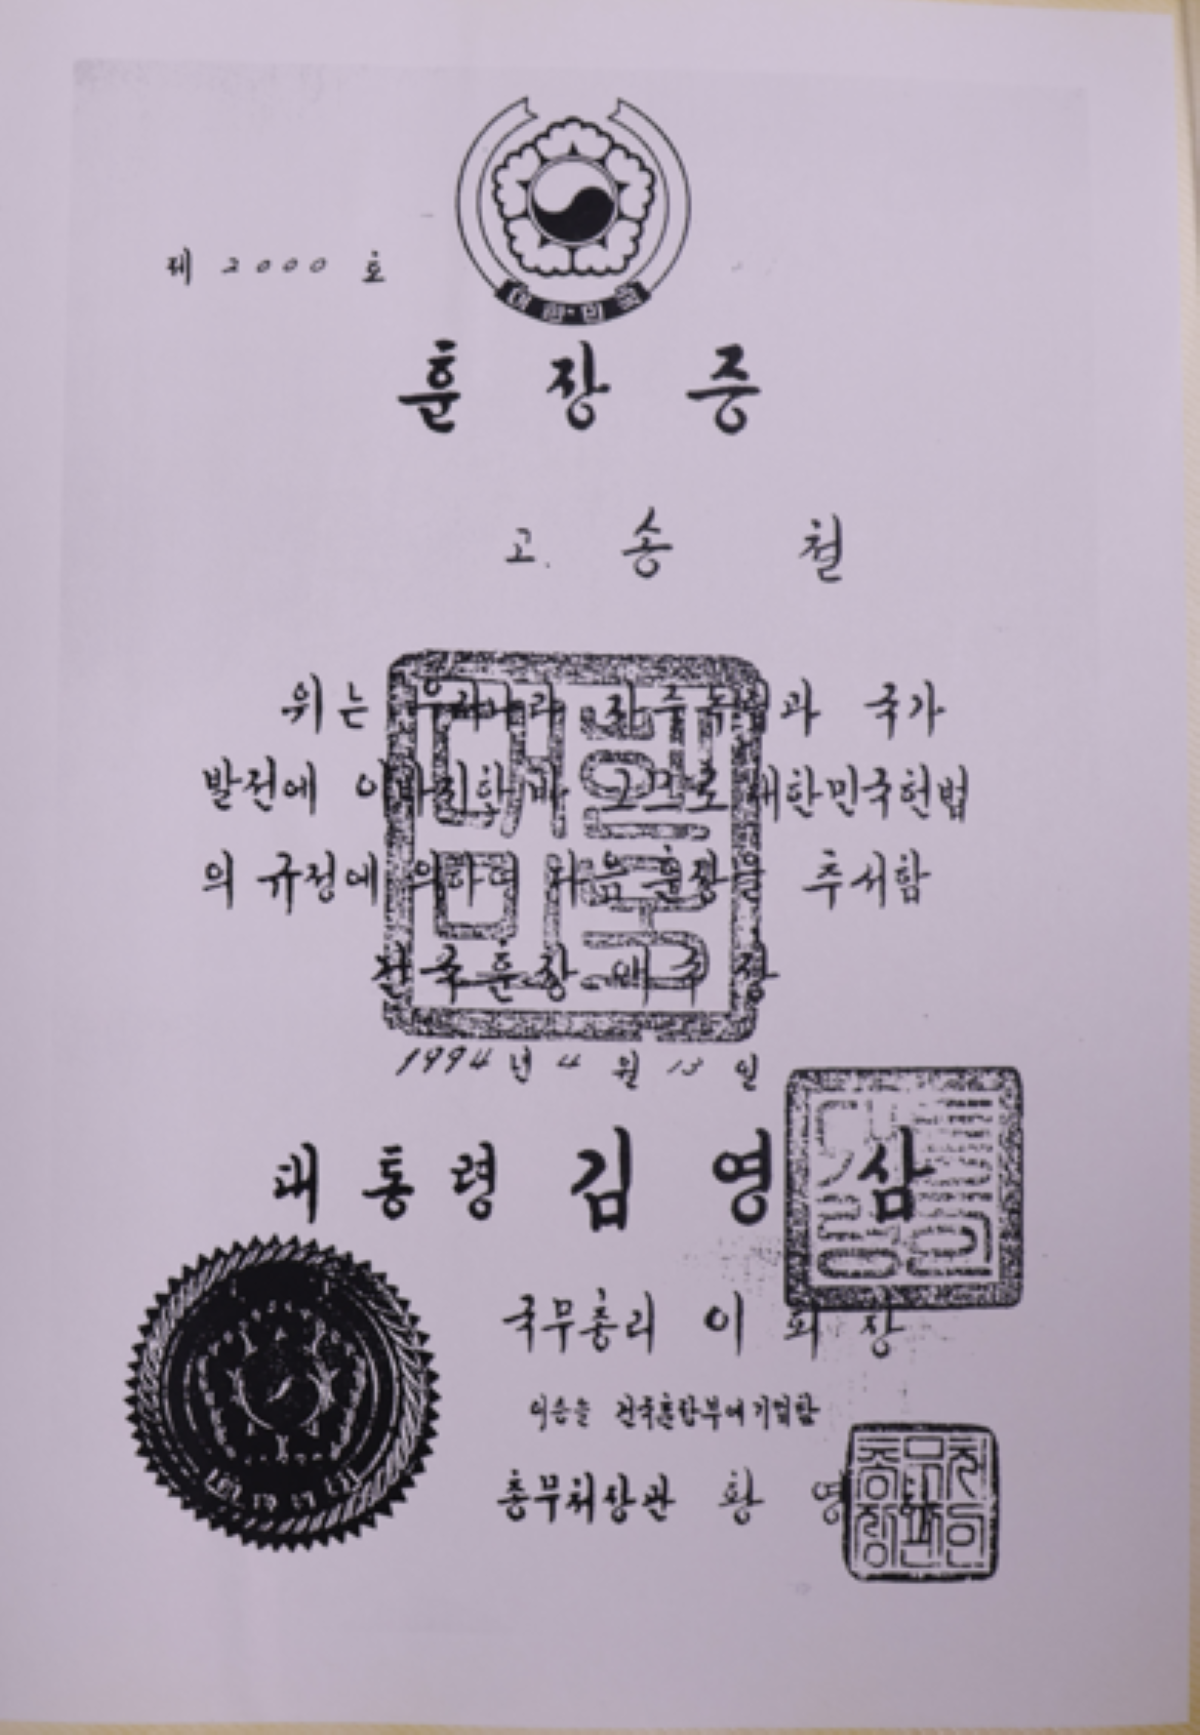 대한민국
제 2000 호
훈장증
고. 송 철
위는 우리나라 자주독립과 국가
발전에 이바지한바 그므로 대한민국헌법
의 규정에 의하여 다음 훈장을 추서함
건국훈장 애국장
1994년 4월 13일
대통령 김영삼
국무총리 이회창
이증을 건국훈장부에기입함
총무처장관 황영